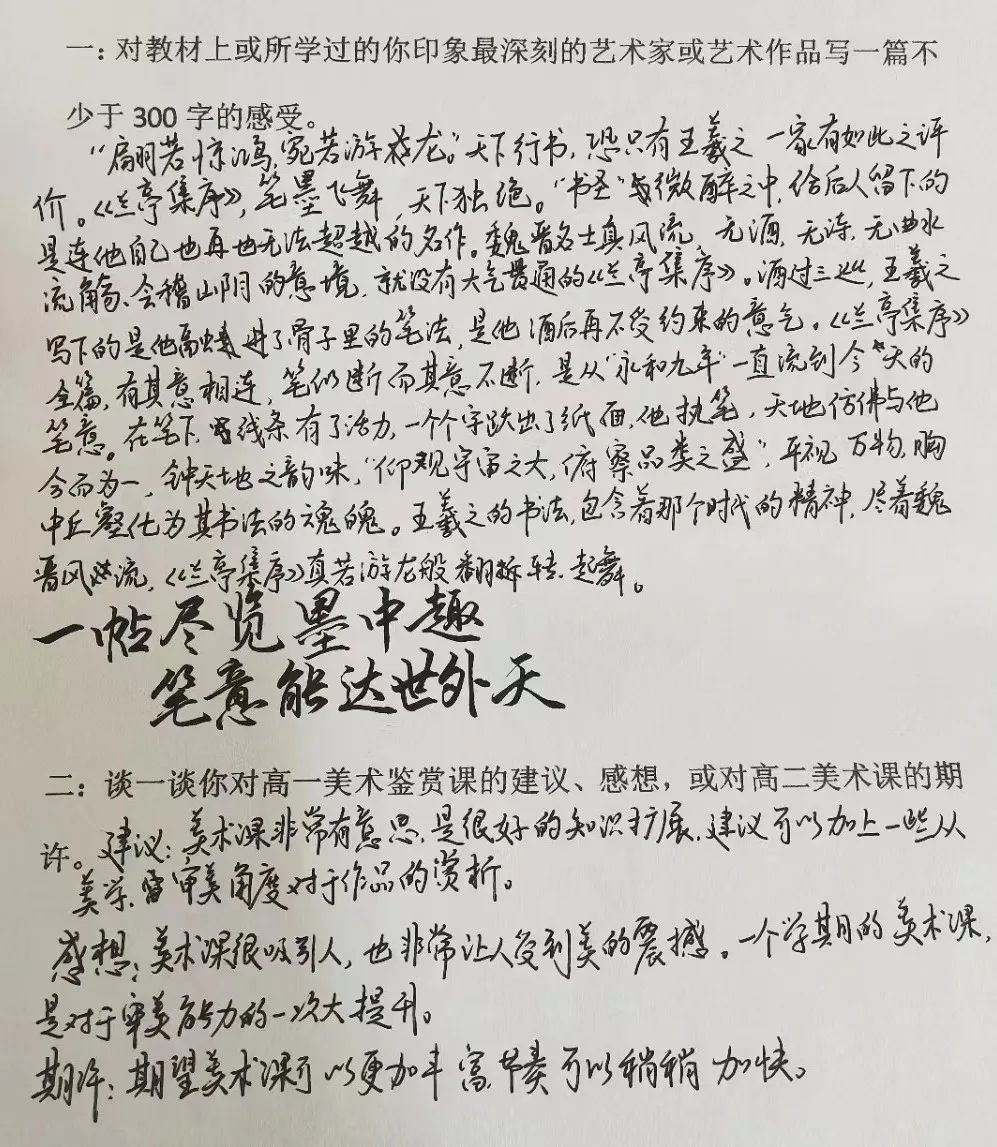 一：对教材上或所学过的你印象最深刻的艺术家或艺术作品写一篇不
少于 300 字的感受。
“翩若惊鸿，宛若游龙。”天下行书，恐只有王羲之一家有如此之评
价。《兰亭集序》，笔墨飞舞，天下独绝。“书圣”微醉之中，给后人留下的
是连他自己也再也无法超越的名作。魏晋名士真风流，无酒，无诗，无曲水
流觞、会稽山阴的意境，就没有大气贯通的《兰亭集序》。酒过三巡，王羲之
写下的是他融进了骨子里的笔法，是他酒后再不受约束的意气。《兰亭集序》
全篇，有其意相连，笔仍断而其意不断，是从“永和九年”一直流到今天的
笔意。在笔下，线条有了活力，一个个字跃出了纸面，他执笔，天地仿佛与他
合而为一，钟天地之韵味，“仰观宇宙之大，俯察品类之盛”，平视万物，胸
中丘壑化为其书法的魂魄。王羲之的书法，包含着那个时代的精神，尽着魏
晋风流，《兰亭集序》真若游龙般翻折转，起舞。
一帖尽览墨中趣
笔意能达世外天
二：谈一谈你对高一美术鉴赏课的建议、感想，或对高二美术课的期
许。建议：美术课非常有意思，是很好的知识扩展，建议可以加上一些从
美学，审美角度对于作品的赏析。
感想：美术课很吸引人，也非常让人受到美的震撼。一个学期的美术课，
是对于审美能力的一次大提升。
期许：期望美术课可以更加丰富，节奏可以稍稍加快。